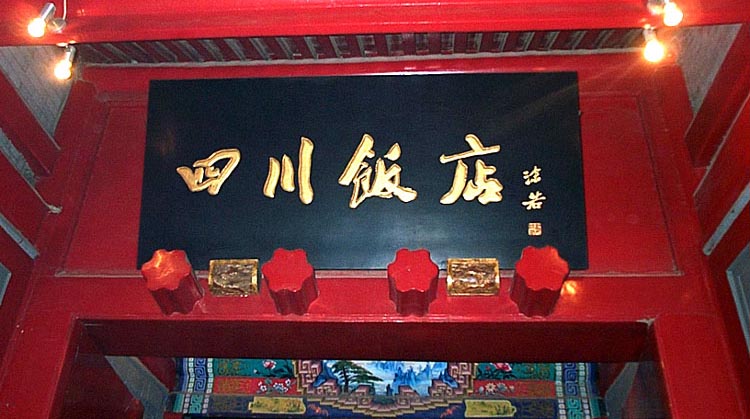 四川飯店
沫若